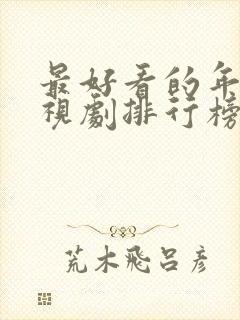 最好看的年
視劇排行榜
荒木飛呂彥